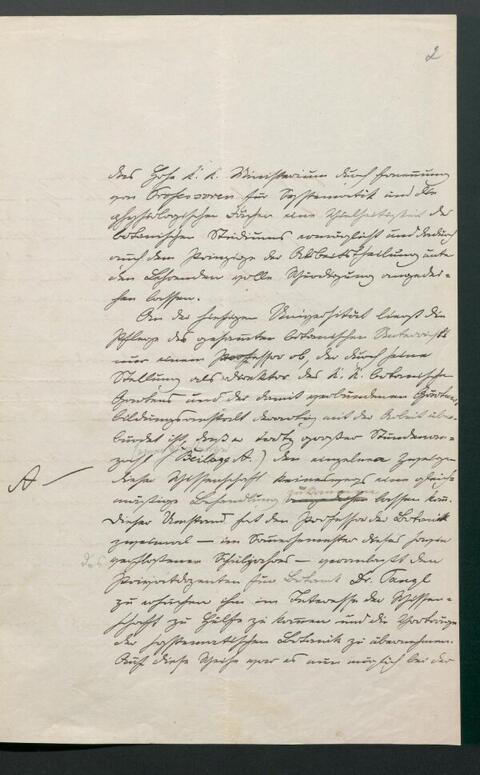 2
das Hohe k. k. Ministerium durch Ernennung
von Professoren für Systematik und die
physiologischen Fächer eine Theilung des
botanischen Studiums ermöglicht und dadurch
auch dem Prinzipe der Arbeitstheilung unter
den Lehrenden volle Würdigung angedei-
hen lassen.
An der hiesigen Universität liegt die
Pflege des gesamten botanischen Unterrichts
nur einem Professor ob, der durch seine
Stellung als Direktor des k. k. botanischen
Gartens und der damit verbundenen Gärtner-
bildungsanstalt derartig mit der Arbeit über-
bürdet ist, daß er trotz großer Stundenan-
zahl (Beilage A.) den einzelnen Zweigen
A
dieser Wissenschaft keineswegs eine gleich-
mäßige Behandlung zukommen lassen kann.
Dieser Umstand hat den Professor der Botanik
zweimal – im Sommersemester dieses
des
verflossenen Schuljahres – veranlaßt den
Privatdozenten für Botanik Dr. Tangl
zu ersuchen ihm im Interesse der Wissen-
schaft zu Hülfe zu kommen und die Vorträge
der systematischen Botanik zu übernehmen.
Auf diese Weise war es nun möglich bei der